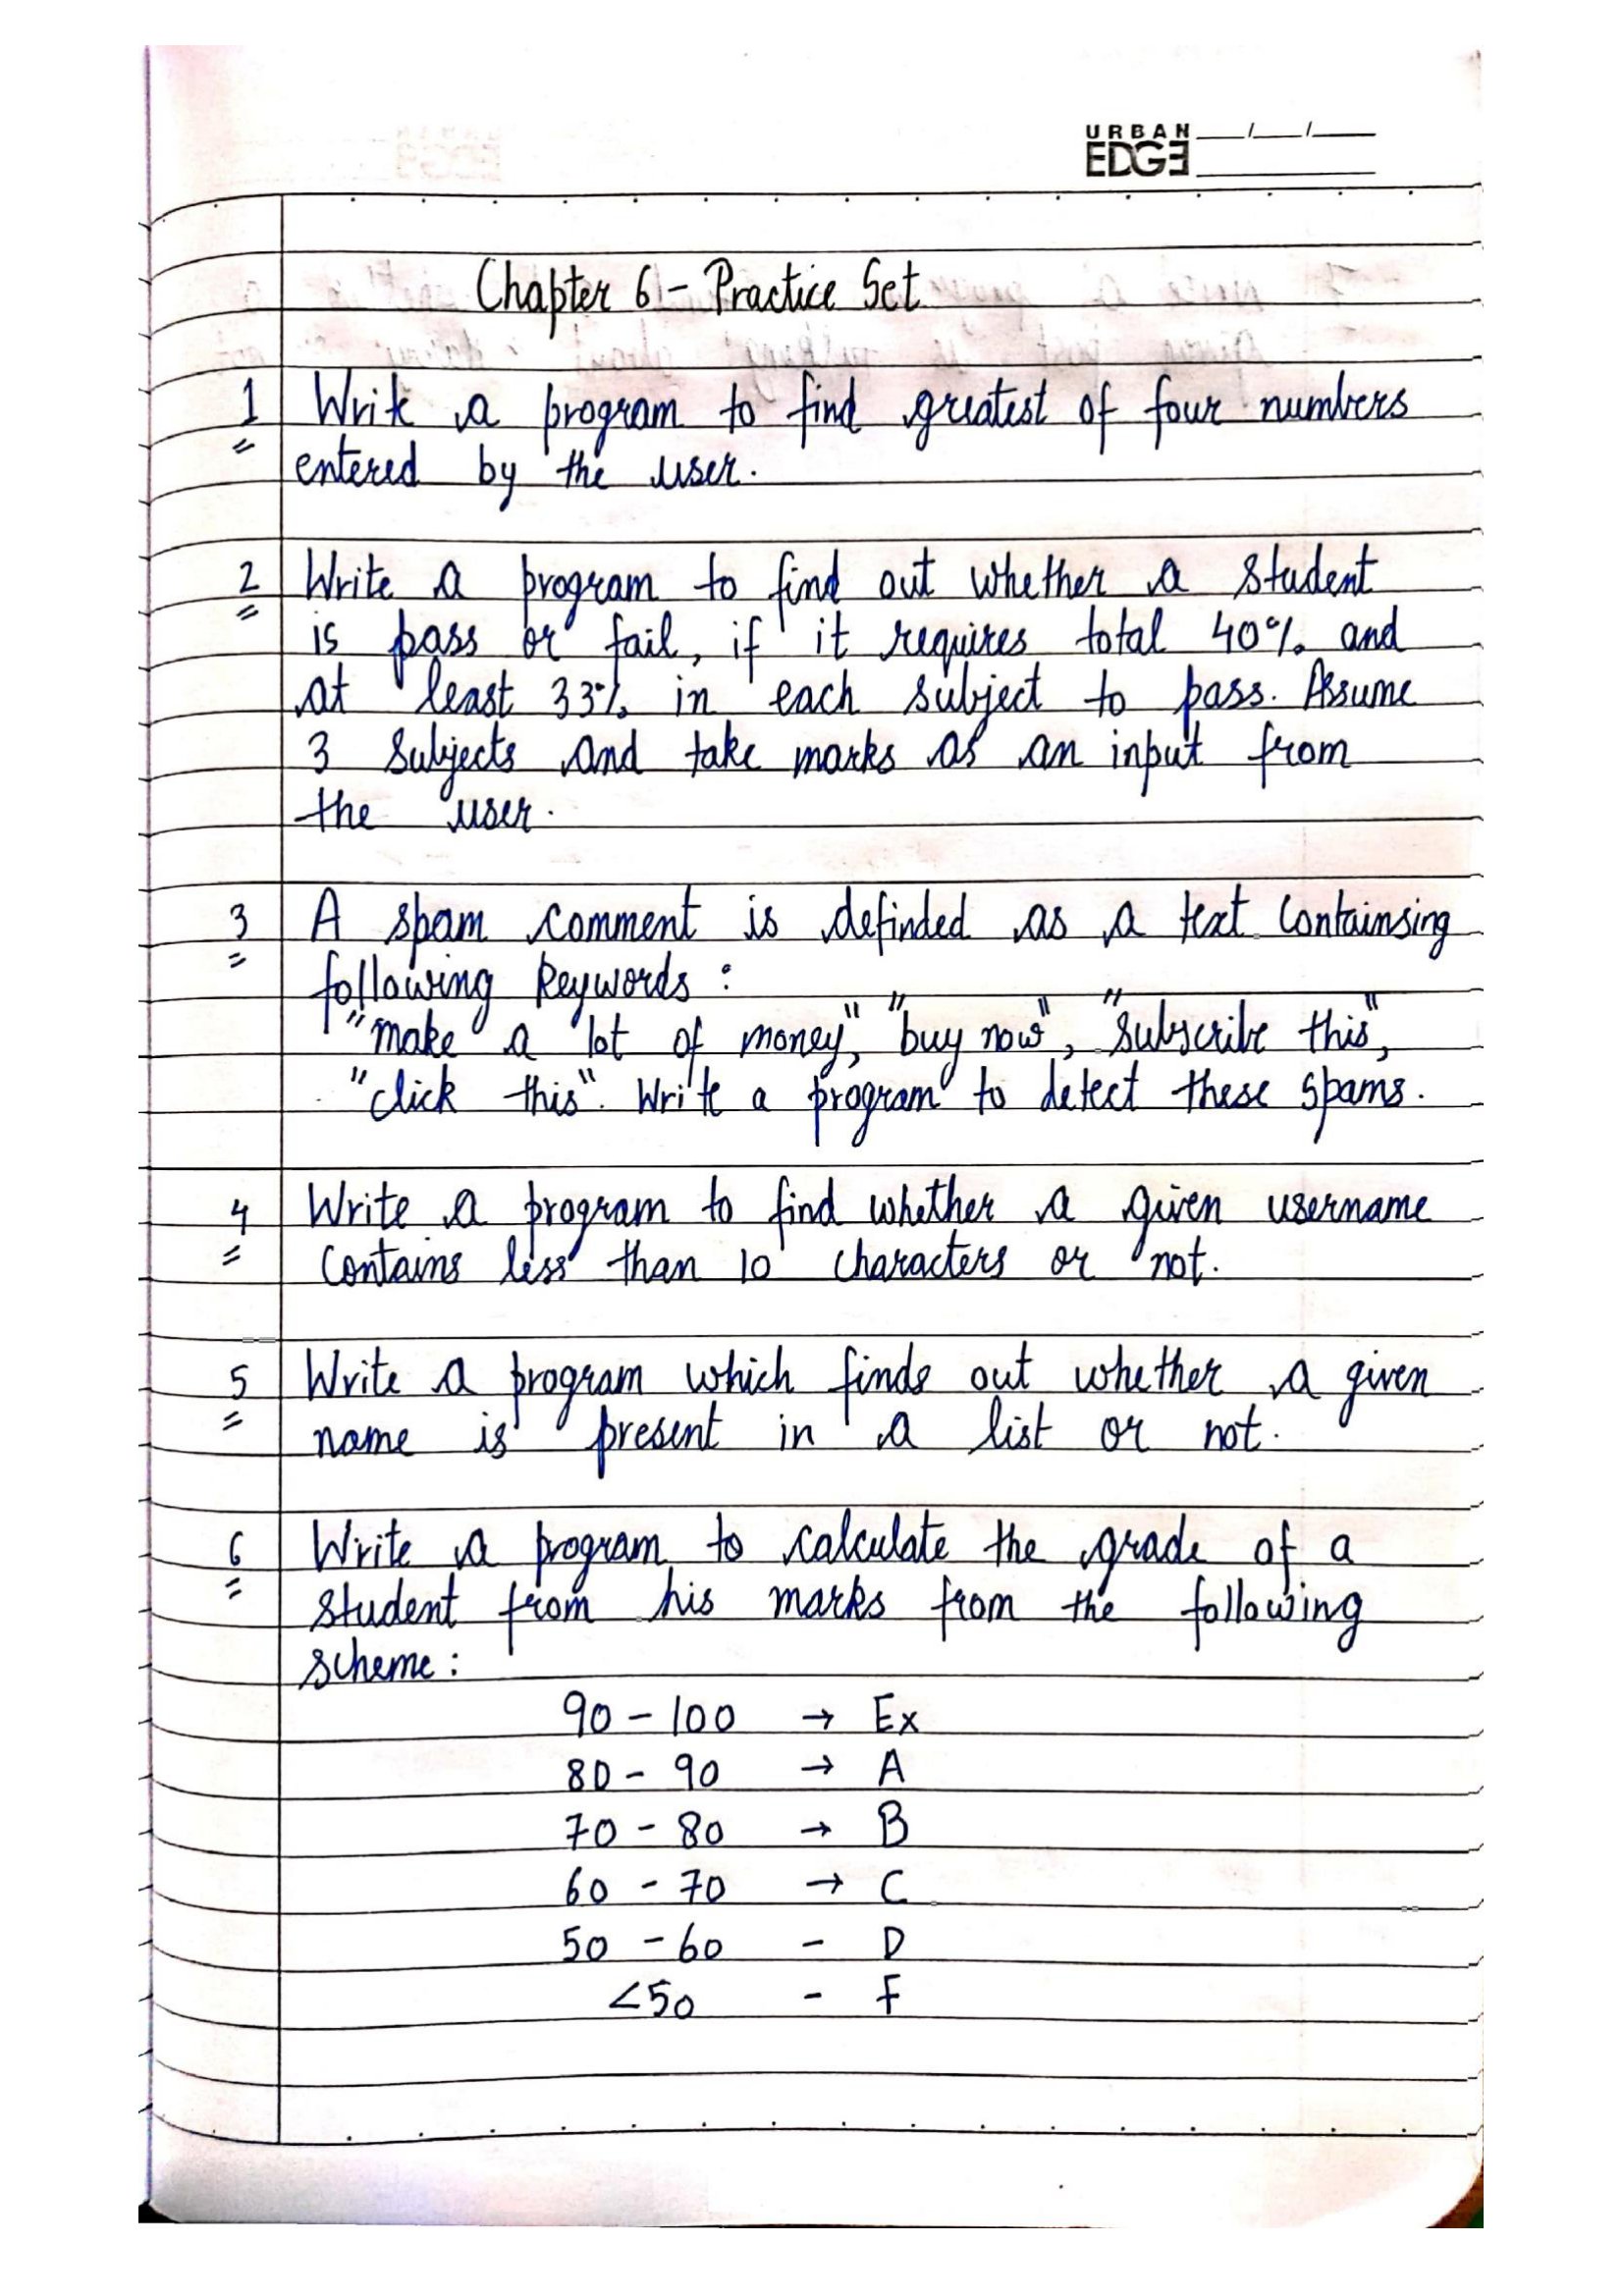 URBAN
EDGE
Chapter 6 - Practice Set
1 Write a program to find greatest of four numbers
entered by the user.
2 Write a program to find out whether a student
is pass or fail, if it requires total 40% and
at least 33% in each subject to pass. Assume
3 subjects and take marks as an input from
the user.
3 A spam comment is definded as a text containsing
following keywords :
"make a lot of money", "buy now", "subscribe this",
"click this". Write a program to detect these spams.
4 Write a program to find whether a given username
contains less than 10 characters or not.
5 Write a program which finds out whether a given
name is present in a list or not.
6 Write a program to calculate the grade of a
student from his marks from the following
scheme :
90 - 100 → Ex
80 - 90 → A
70 - 80 → B
60 - 70 → C
50 - 60 - D
<50 - F